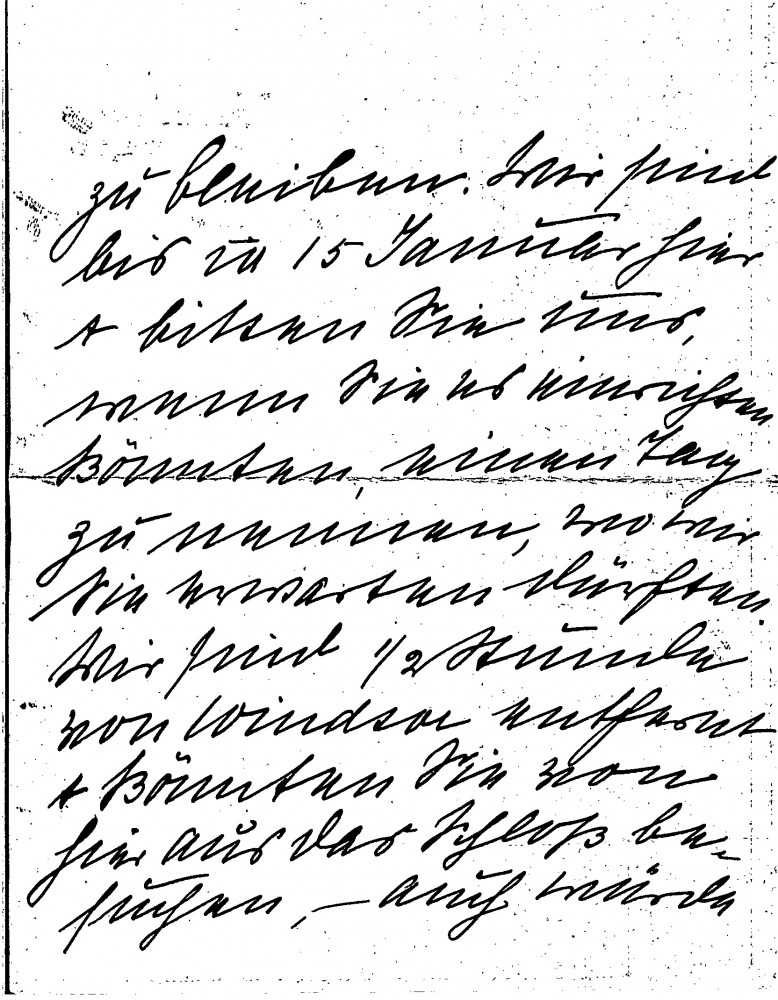 zu bleiben. Wir sind
bis zu 15 Januar hier
+ bitten Sie uns,
wenn Sie es einrichten
könnten, einen Tag
zu nennen, wo wir
Sie erwarten dürften.
Wir sind 1/2 Stunde
von Windsor entfernt
+ könnten Sie von
hier aus das Schloß be-
suchen, – auch würde